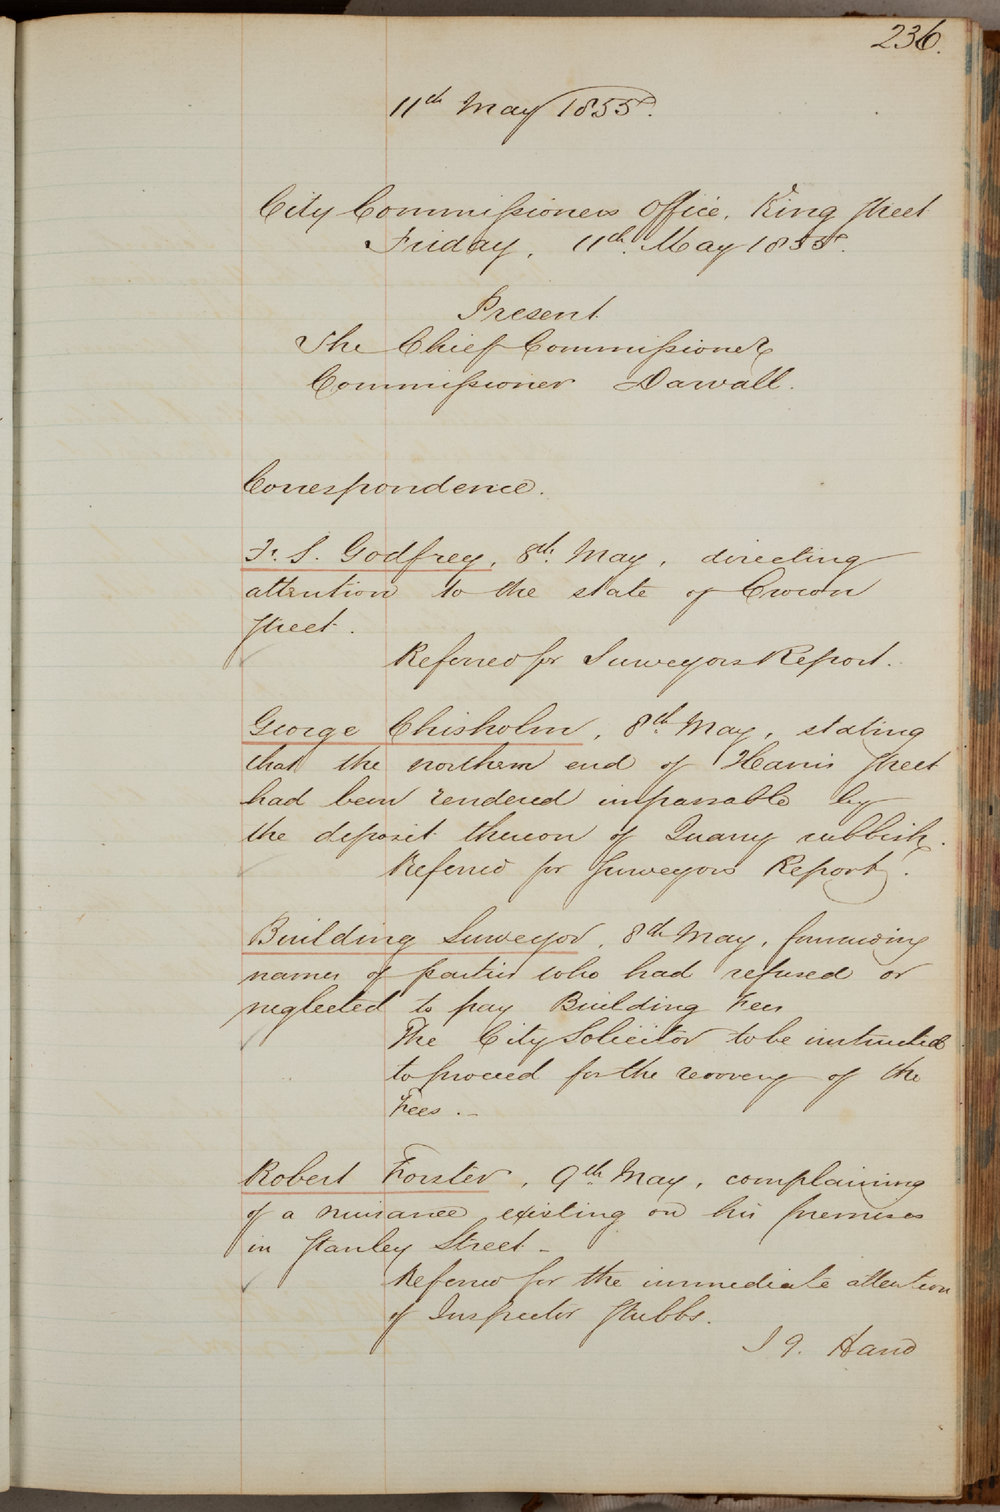 236.
11th May 1855.
City Commissioners Office, King Street
Friday, 11th May 1855.
Present
The Chief Commissioner
Commissioner Darvall.
Correspondence.
Fr. S. Godfrey, 8th May, directing
attention to the state of Crown
Street.
Referred for Surveyors Report.
George Chisholm, 8th May, stating
that the northern end of Harris Street
had been rendered impassable by
the deposit thereon of Quarry rubbish.
Referred for Surveyors Report.
Building Surveyor, 8th May, forwarding
names of parties who had refused or
neglected to pay Building Fees
The City Solicitor to be instructed
to proceed for the recovery of the
Fees.-
Robert Forster, 9th May, complaining
of a nuisance existing on his premises
in Stanley Street -
Referred for the immediate attention
of Inspector Stubbs.
Hand